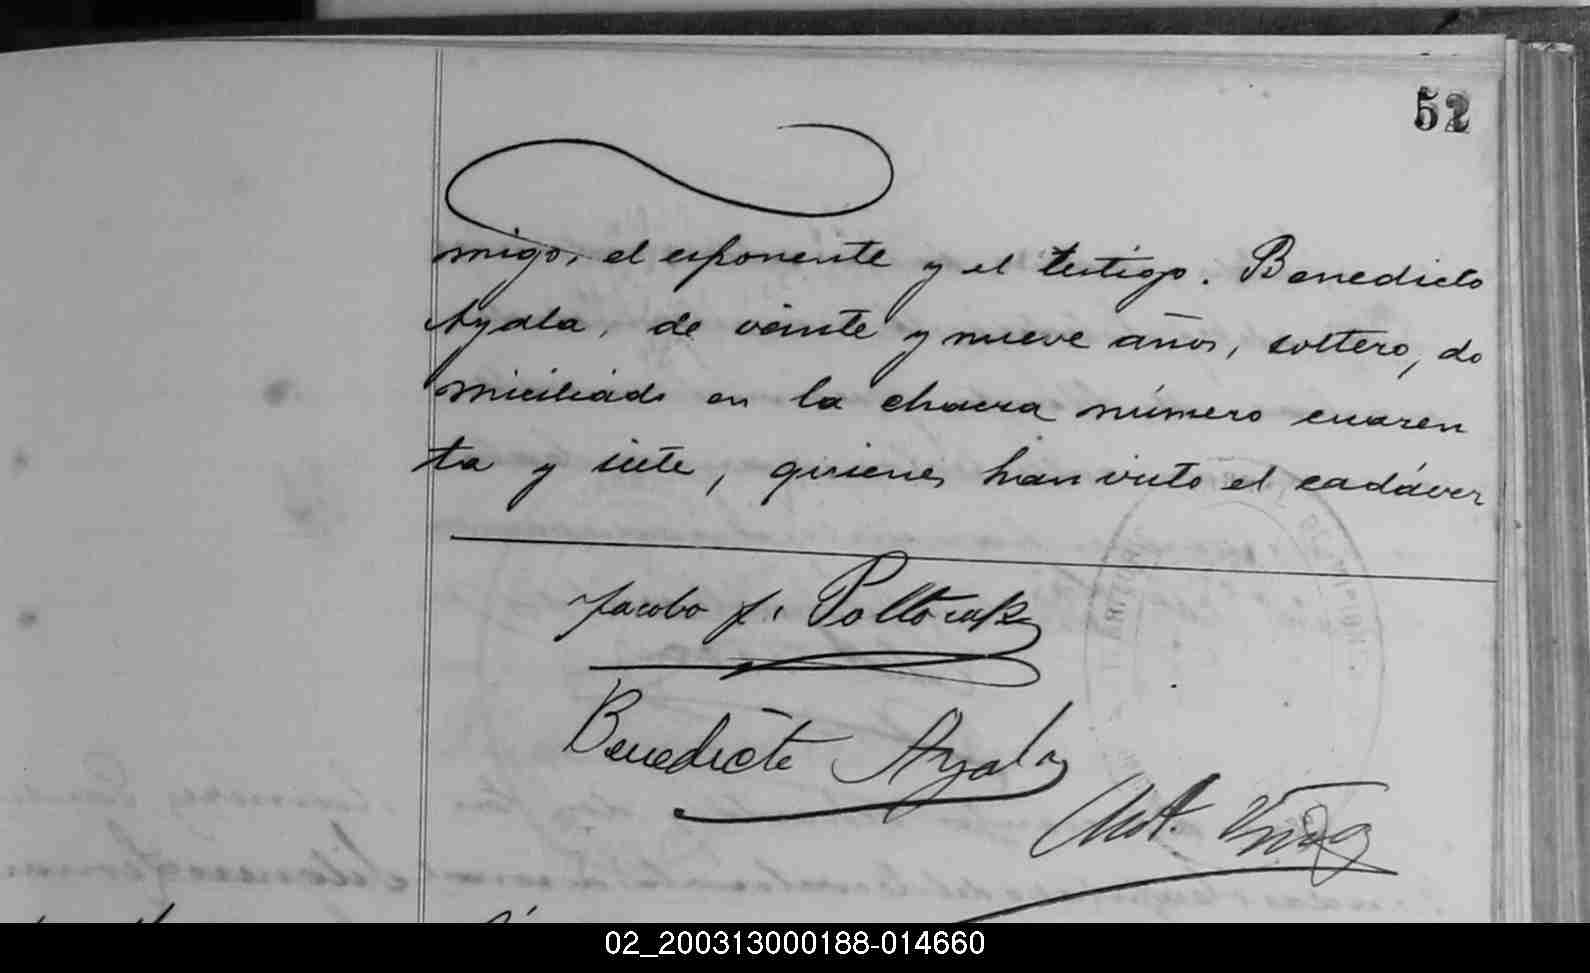 52
migo, el exponente y el testigo. Benedicto
Ayala, de veinte y nueve años, soltero, do
miciliado en la chacra número cuaren
ta y siete, quienes han visto el cadáver
Jacobo J. Poltorak
Benedicto Ayala
02_200313000188-014660